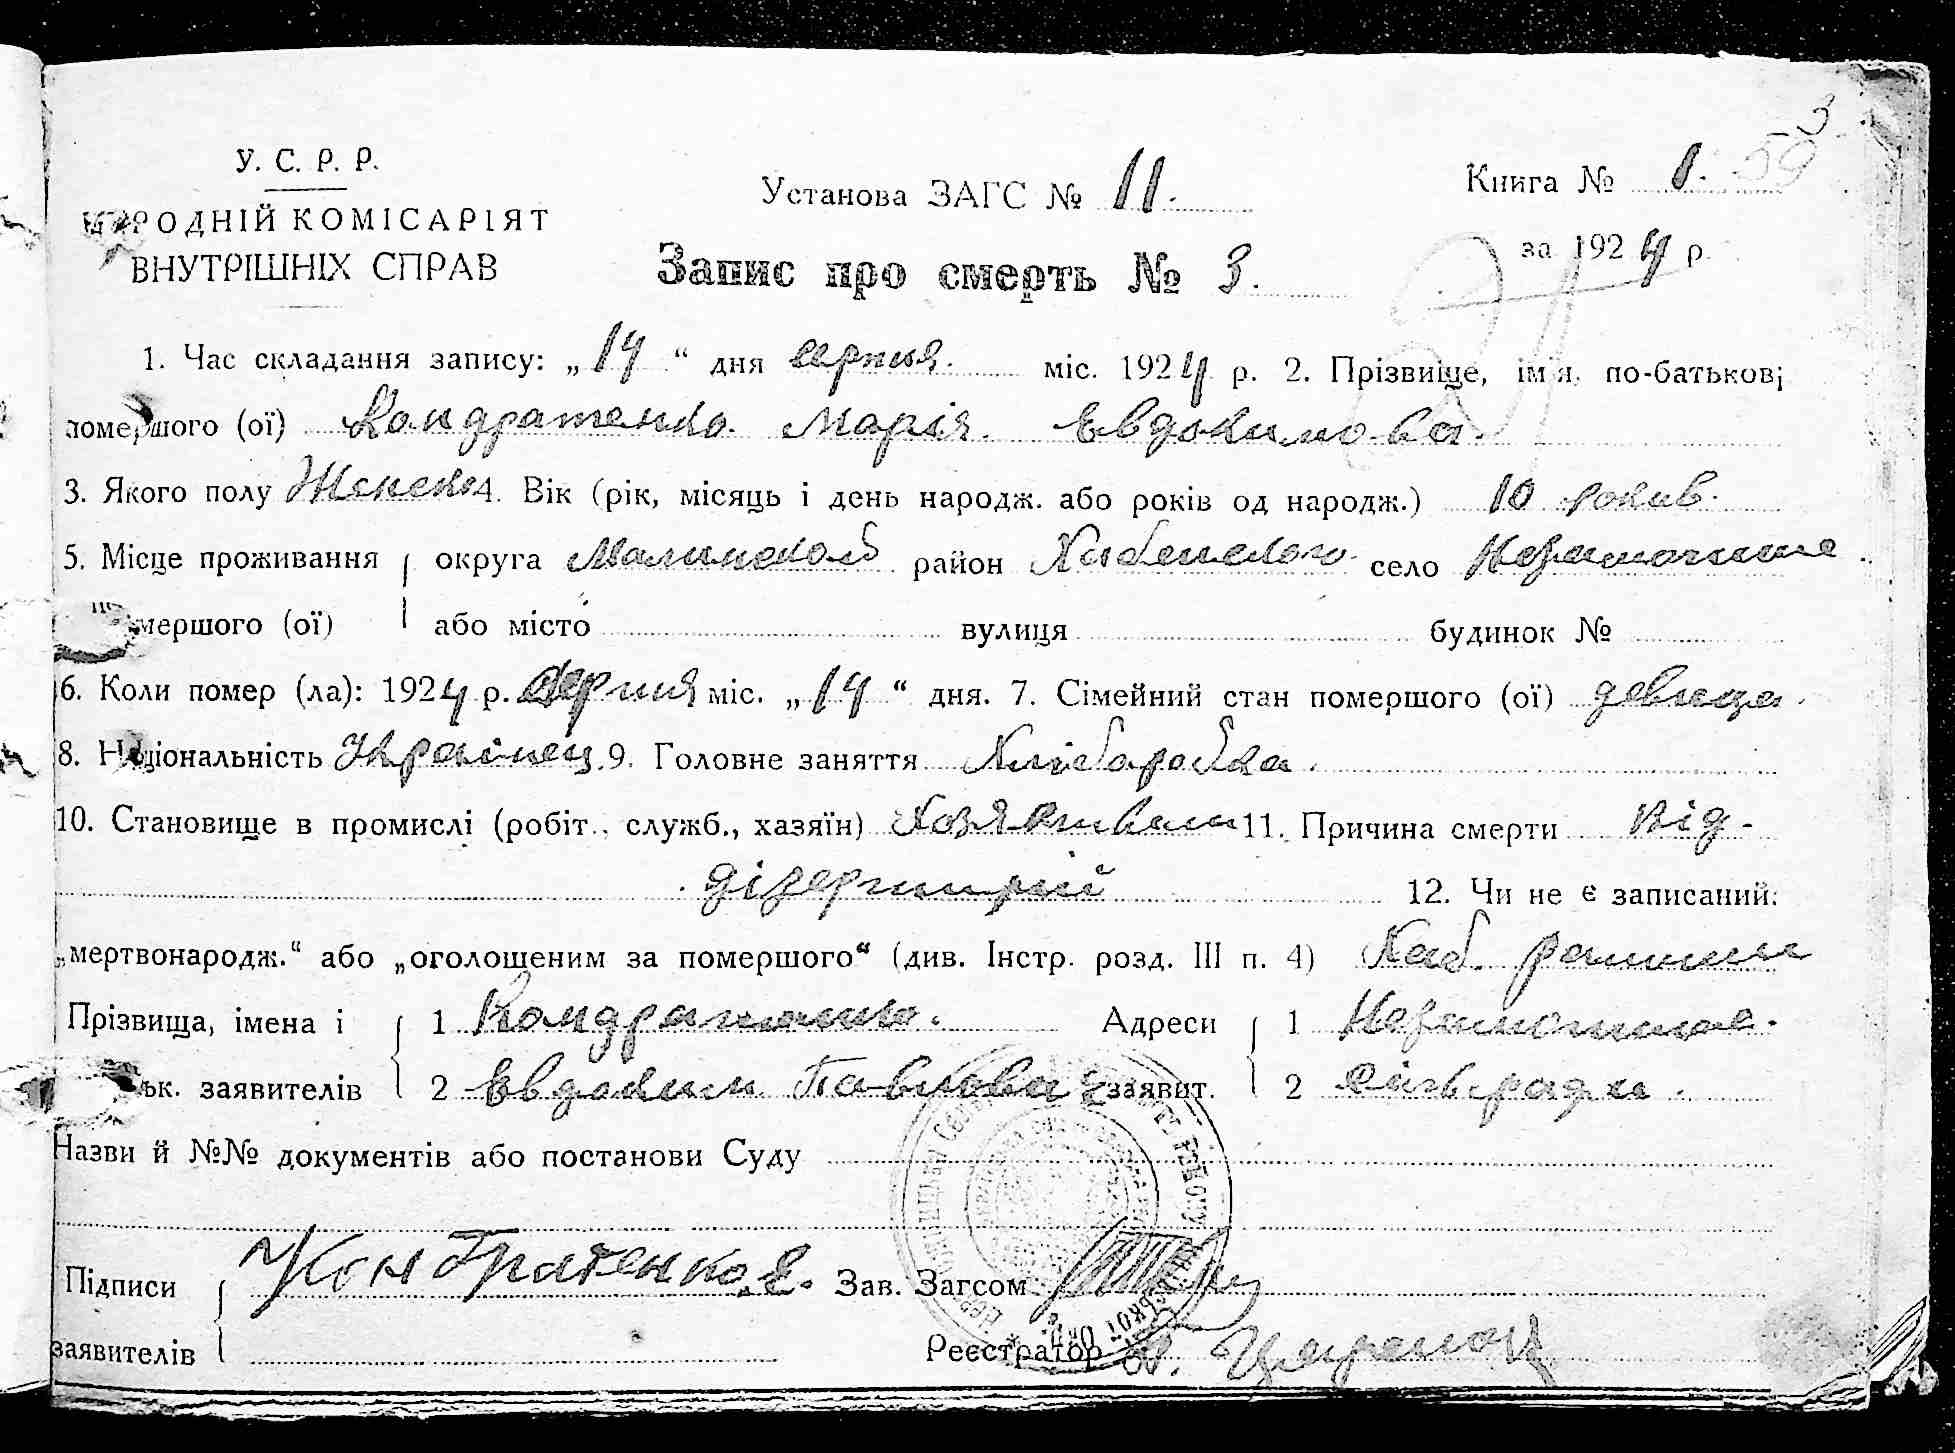 У. С. Р. Р.
НАРОДНІЙ КОМІСАРІЯТ
ВНУТРІШНІХ СПРАВ
Установа ЗАГС № 11.
Книга № 1.
3
59
за 1924 р.
Запис про смерть № 3.
1. Час складання запису: „14“ дня серпня. міс. 1924 р. 2. Прізвище, ім'я, по-батькові
помершого (ої) Кондратенко Марія Евдокимова.
3. Якого полу Женск 4. Вік (рік, місяць і день народж. або років од народж.) 10 рокив.
5. Місце проживання округа Малинской район Хабенского село
помершого (ої) або місто вулиця будинок №
6. Коли помер (ла): 1924 р. серпня міс. „14“ дня. 7. Сімейний стан помершого (ої) девица.
8. Національність Українец 9. Головне заняття Хлібаробка.
10. Становище в промислі (робіт., служб., хазяїн) 11. Причина смерти від
дізернтрій
12. Чи не є записаний:
„мертвонародж.“ або „оголошеним за помершого“ (див. Інстр. розд. III п. 4) Хаб.
Прізвища, імена і 1 Адреси 1
ьк. заявителів 2 Евдоким Павлова заявит. 2 сільради.
Назви й №№ документів або постанови Суду
Підписи Кондратенко Е. Зав. Загсом
заявителів Реєстратор